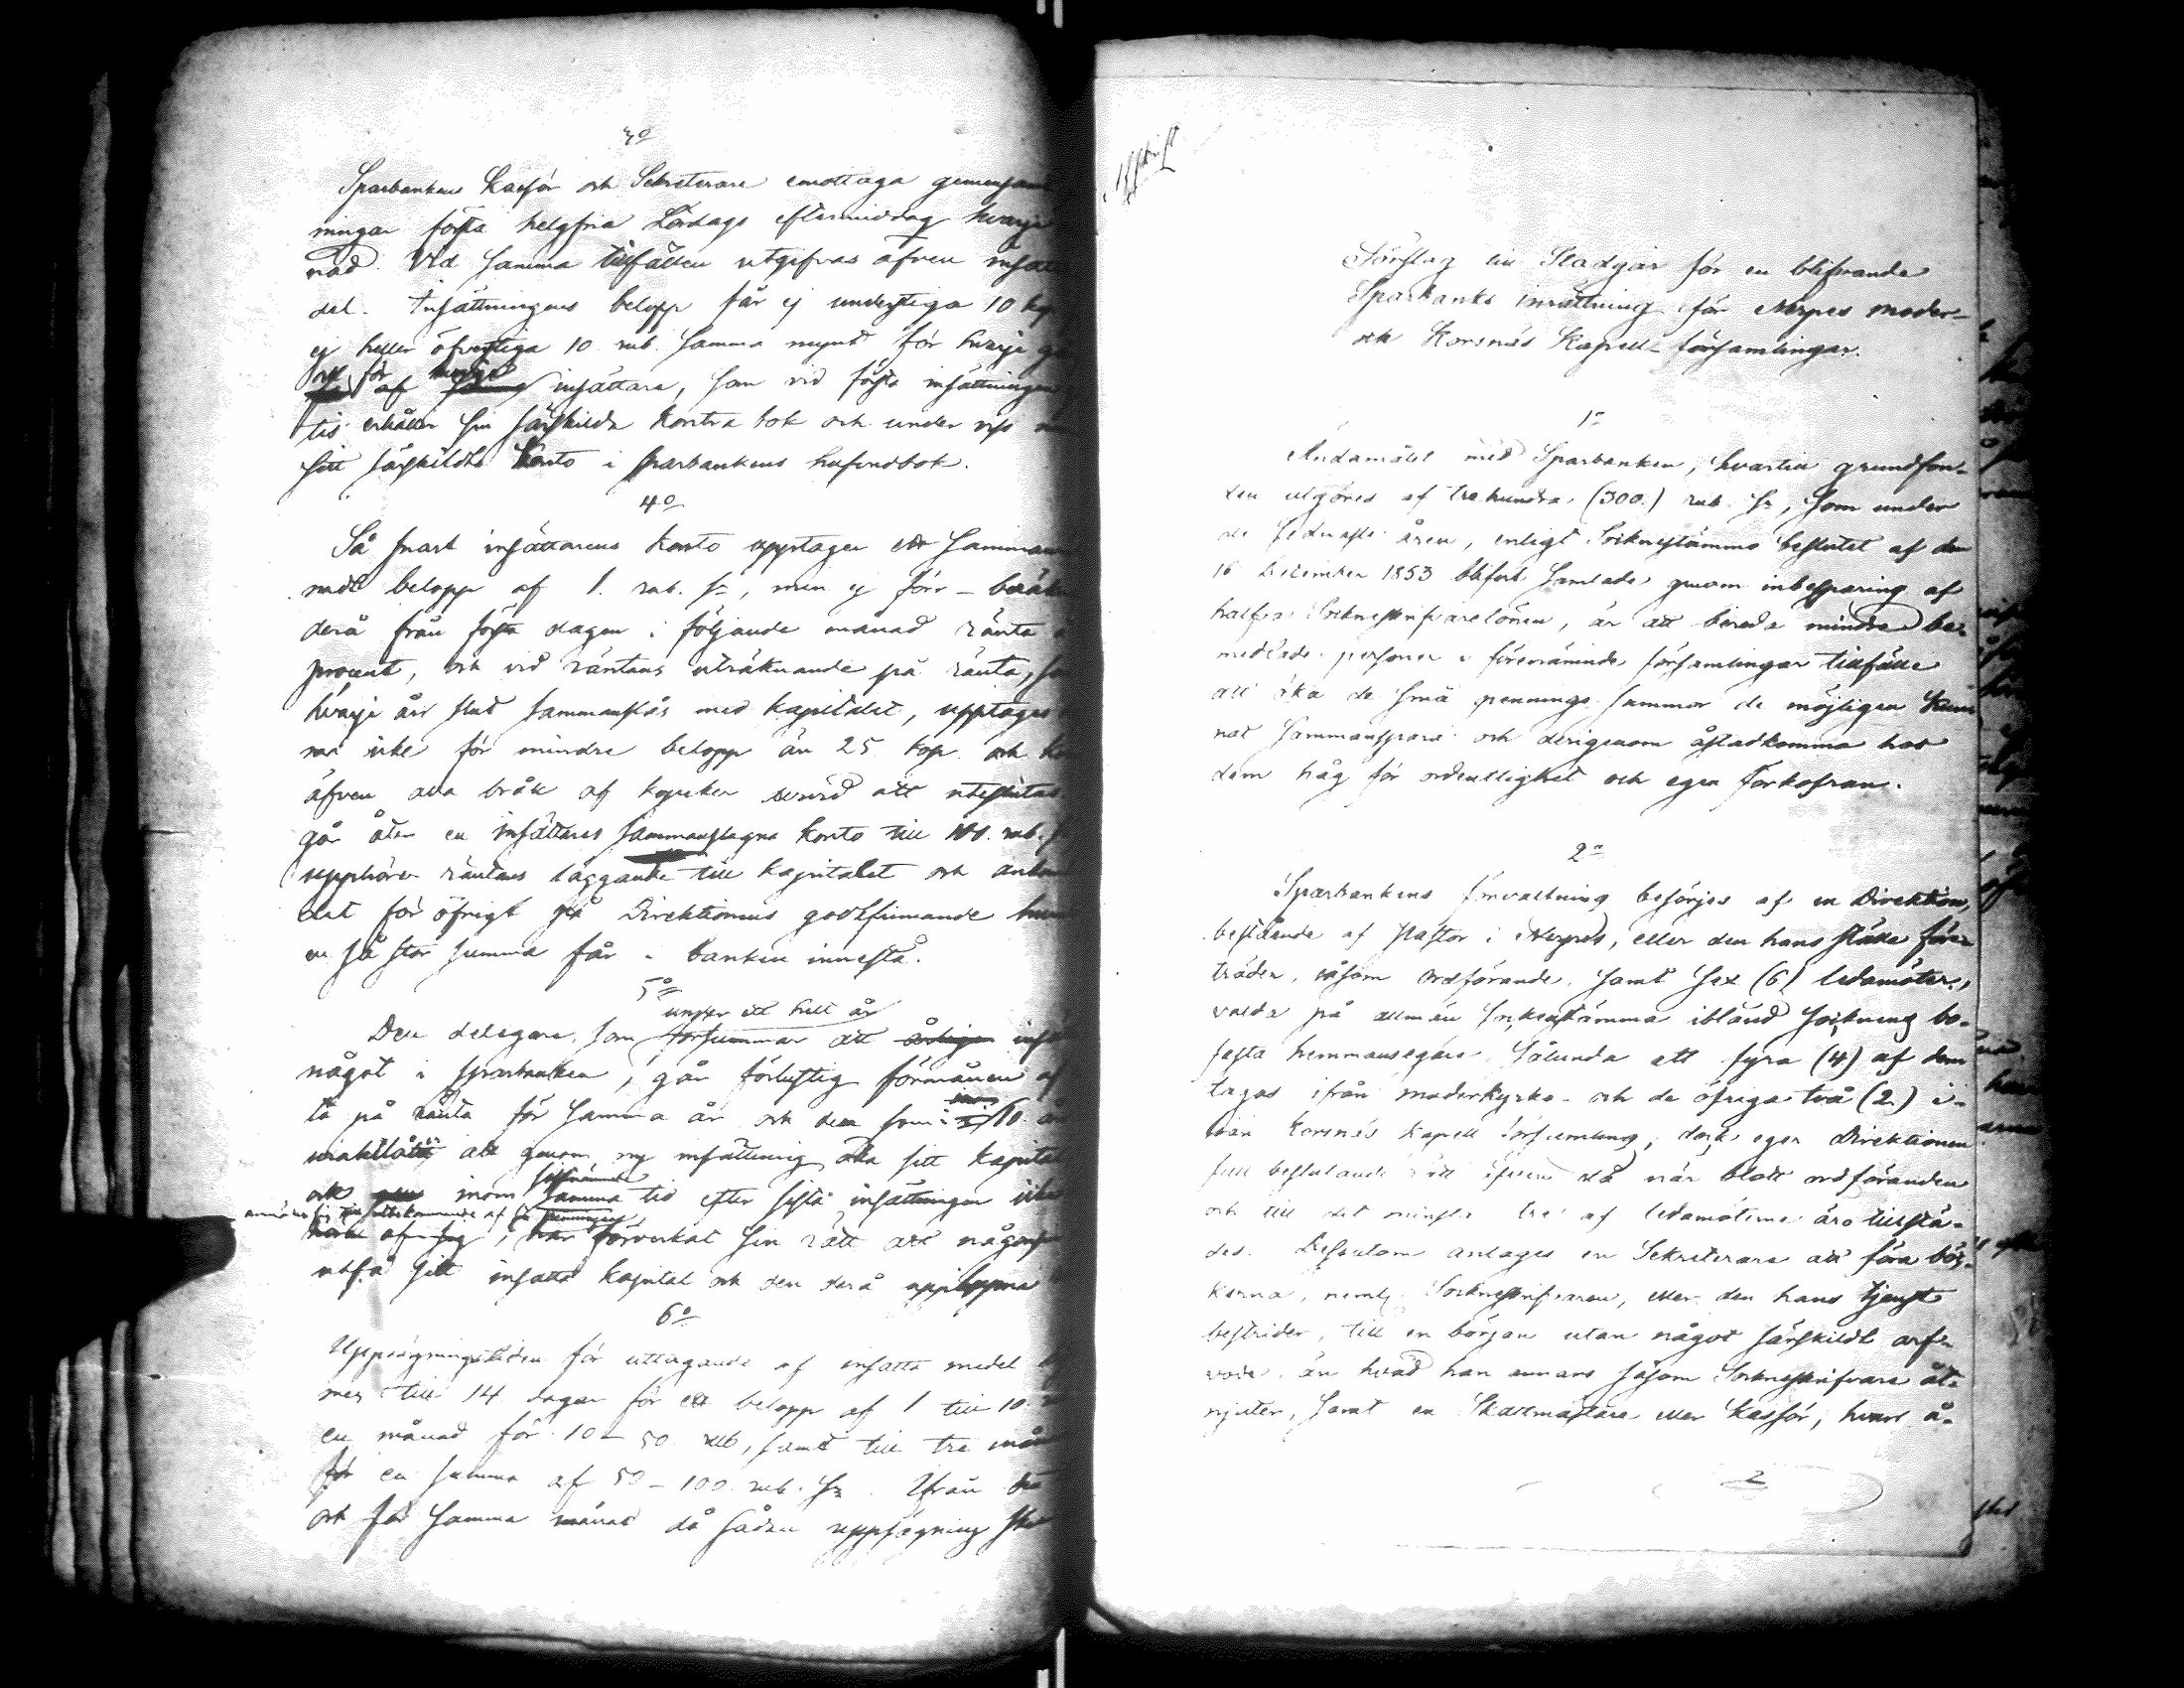 3o
Sparbankens Kassör och Sekreterare emottaga gemensamt
ningar första helgfria Lördags eftermiddag hvarje
nad. Vid samma tillfällen utgifvas äfven insatt
del. Insättningens belopp får ej understiga 10 kop
ej heller öfverstiga 10 rub. samma mynt för hvarje
och för hvarje
af insättare, som vid första insättningen
tis erhåller sin särskilda kontra bok och under viss
sitt särskildta Konto i sparbankens hufvudbok.
4o
Så snart insättarens konto upptager ett samman
nadt belopp af 1. rub. Sr, men ej förr - beräk
derå från första dagen i följande månad ränta
procent, och vid räntans uträknande på ränta,
hvarje års slut sammanslås med kapitalet, upptages
icke för mindre belopp än 25 kop. och
äfven alla bråk af kopeker dervid att uteslutas.
går åter en insättares sammanslagna konto till 100. rub.
upphörer räntans läggande till kapitalet och
det för öfrigt på Direktionens godtfinnande
en så stor summa får i banken innestå.
5o
under ett helt år
Den delegare, som försummar att årligen
något i sparbanken, går förlustig förmånen af
ta på ränta för samma år och den som 10
att genom ny insättning öka sitt kapital
och inom samma tid efter sista insättningen
förverkat sin rätt att någonsin
utfå sitt insatta kapital och den derå upplupna
6o
Uppsägningstiden för uttagande af insatta medel
mes till 14 dagar för ett belopp af 1 till 10
en månad för 10 - 50 rub, samt till tre mån
för en summa af 50 - 100. rub. Sr. Ifrån
och för samma månad då sådan uppsägning sker
Afskrift
Förslag till Stadgar för en blifvande
Sparbanks inrättning för Nerpes moder-
och Korsnäs Kapell-församlingar.
1o
Ändamålet med Sparbanken, hvartill grundfon-
den utgöres af trehundra (300.) rub. Sr, som under
de sednaste åren, enligt Sockenstämmo beslutet af den
16 December 1853 blifvit samlade genom inbesparing af
halfva Sockneskrifvarelönen, är att bereda mindre be-
medlade personer i förenämnde församlingar tillfälle
att öka de små pennings summor de möjligen kun-
nat sammanspara och derigenom åstadkomma hos
dem håg för ordentlighet och egen förkofran.
2o
Sparbankens förvaltning besörjes af en Direktion,
bestående af Pastor i Nerpes, eller den hans ställe före-
träder, såsom ordförande, samt sex (6) ledamöter,
valda på allmän sockenstämma ibland socknens bo-
fasta hemmansegare, sålunda att fyra (4) af dem
tagas ifrån moderkyrko- och de öfriga två (2) i-
från Korsnäs kapell församling, dock eger Direktionen
full beslutande rätt äfven då när blott ordföranden
och till det minsta tre af ledamöterne äro tillstä-
des. Dessutom antages en Sekreterare att föra böc-
kerna, neml. Sockneskrifvaren, eller den hans tjenst
bestrider, till en början utan något särskildt arf-
vode, än hvad han annars såsom Sockneskrifvare åt-
njuter, samt en Skattmästare eller Kassör, hvars å-
2